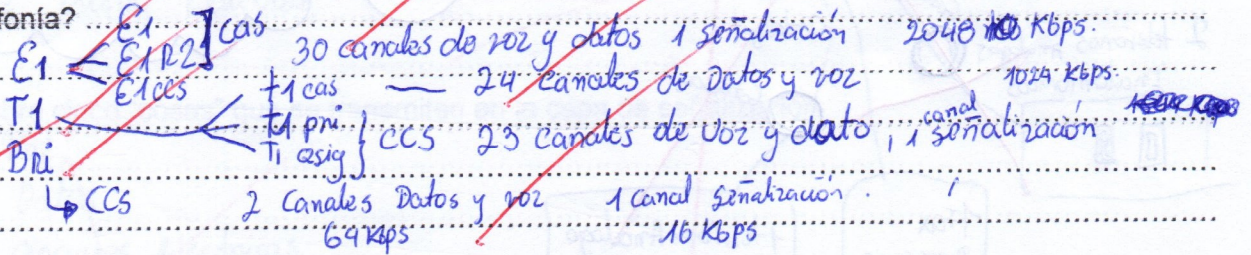 fonía?
E1
E1 E1R2 ] cas 30 canales de voz y datos 1 señalización 2048 Kbps.
E1ccs
t1 cas — 24 Canales de Datos y voz 1024 Kbps.
T1
t1 pri } CCS 23 canales de voz y dato, 1 canal señalización
T1 Qsig
Bri
↳ CCS 2 Canales Datos y voz 1 Canal señalización.
64 Kbps 16 Kbps